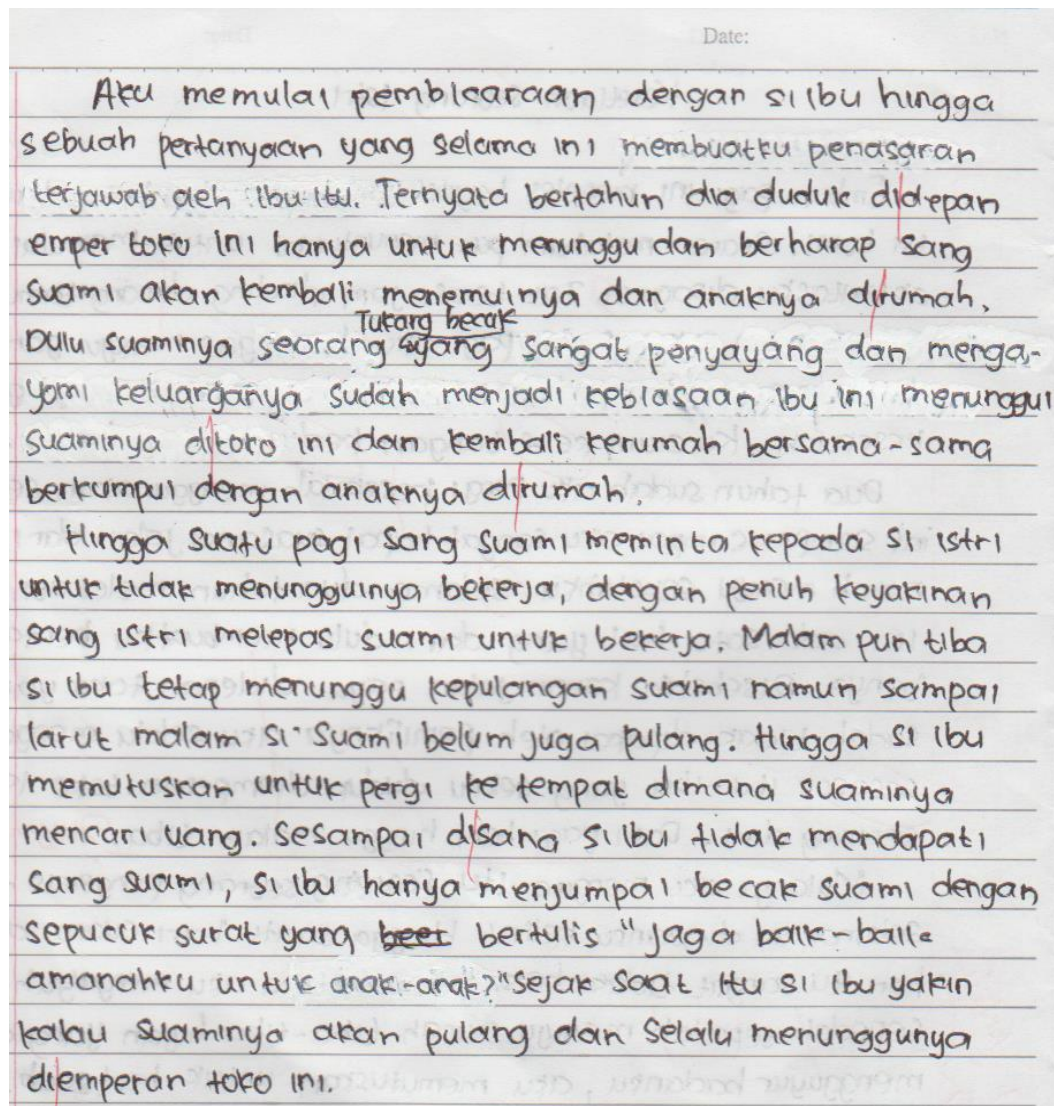 Date:
Aku memulai pembicaraan dengan si ibu hingga
sebuah pertanyaan yang selama ini membuatku penasaran
terjawab oleh ibu itu. Ternyata bertahun dia duduk didepan
emper toko ini hanya untuk menunggu dan berharap sang
suami akan kembali menemuinya dan anaknya dirumah.
Tukang becak
Dulu suaminya seorang yang sangat penyayang dan menga-
yomi keluarganya sudah menjadi kebiasaan ibu ini menunggui
suaminya ditoko ini dan kembali kerumah bersama-sama
berkumpul dengan anaknya dirumah.
Hingga suatu pagi sang suami meminta kepada si istri
untuk tidak menungguinya bekerja, dengan penuh keyakinan
sang istri melepas suami untuk bekerja. Malam pun tiba
si ibu tetap menunggu kepulangan suami namun sampai
larut malam si suami belum juga pulang. Hingga si ibu
memutuskan untuk pergi ke tempat dimana suaminya
mencari uang. Sesampai disana si ibu tidak mendapati
sang suami, si ibu hanya menjumpai becak suami dengan
sepucuk surat yang beer bertulis "jaga baik-baik
amanahku untuk anak-anak?" Sejak saat itu si ibu yakin
kalau suaminya akan pulang dan selalu menunggunya
diemperan toko ini.